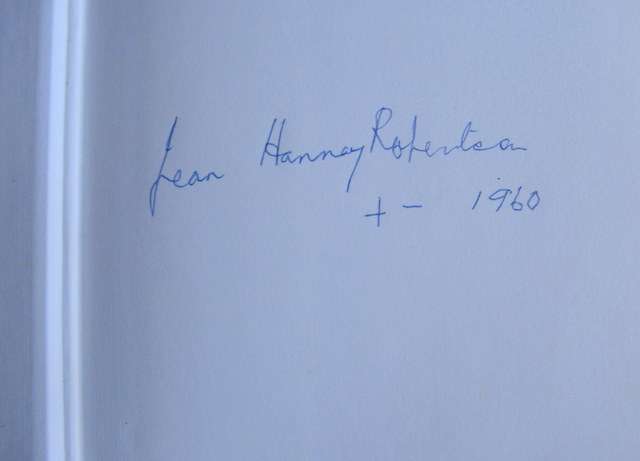 Jean Hannay Robertson
+ - 1960